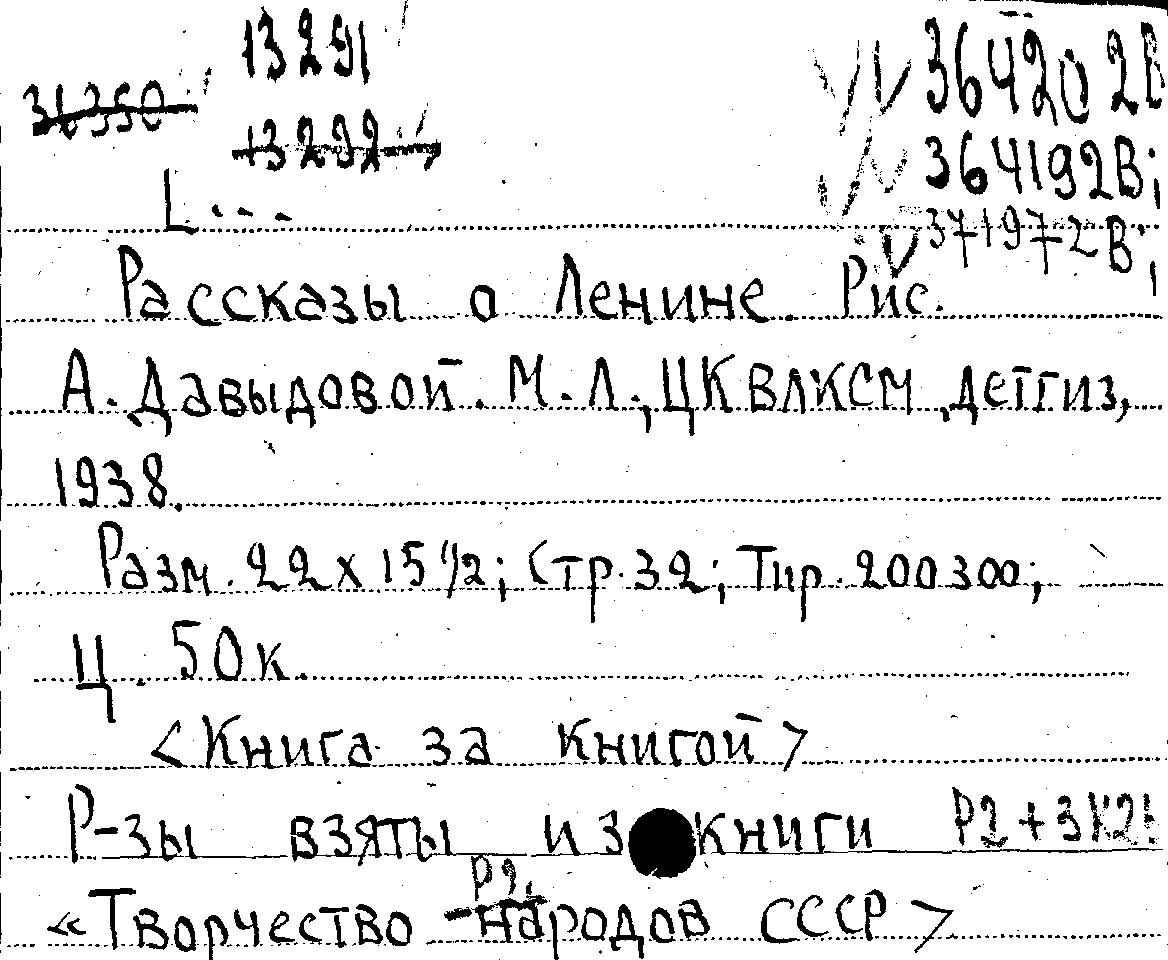 13291
364202В
36350
13292
364192В;
L...
371972В;
Рассказы о Ленине. Рис.
А. Давыдовой. М. Л., ЦК ВЛКСМ, детгиз,
1938.
Разм. 22 х 15 1/2; Стр. 32; Тир. 200300;
Ц. 50 к.
<Книга за книгой>
Р-зы взяты из книги Р2+3К2!
Р2.
«Творчество народов СССР>